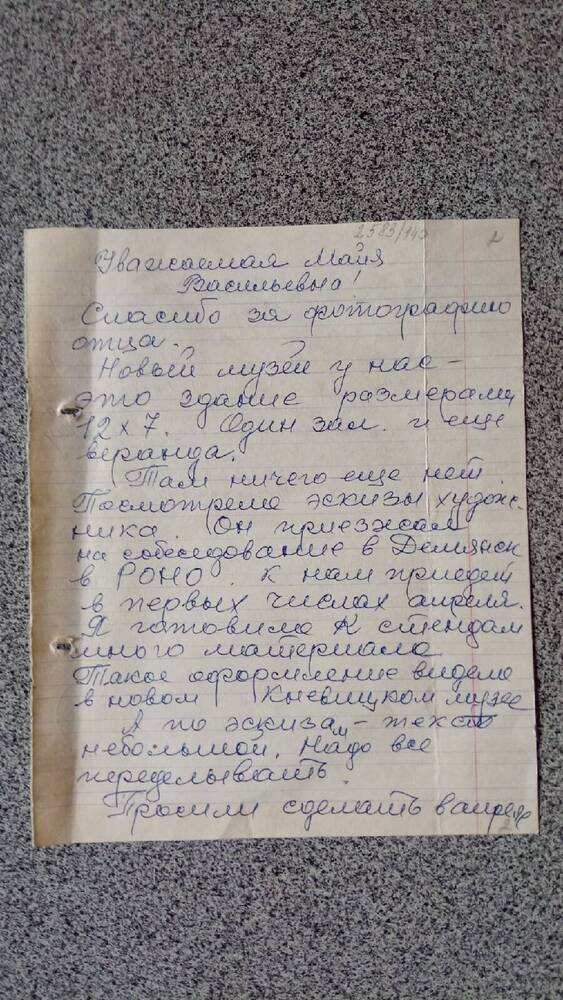 2583/143 2
Уважаемая Майя
Васильевна!
Спасибо за фотографию
отца.
Новый музей у нас –
это здание размерами
12 х 7. Один зал. и еще
веранда.
Там ничего еще нет.
Посмотрела эскизы худож-
ника. Он приезжал
на собеседование в Демянск
в РОНО. К нам приедет
в первых числах апреля.
Я готовила к стендам
много материала
Такое оформление видела
в новом Кневицком музее
А по эскизам – текст
небольшой. Надо все
переделывать.
Просили сделать в апреле